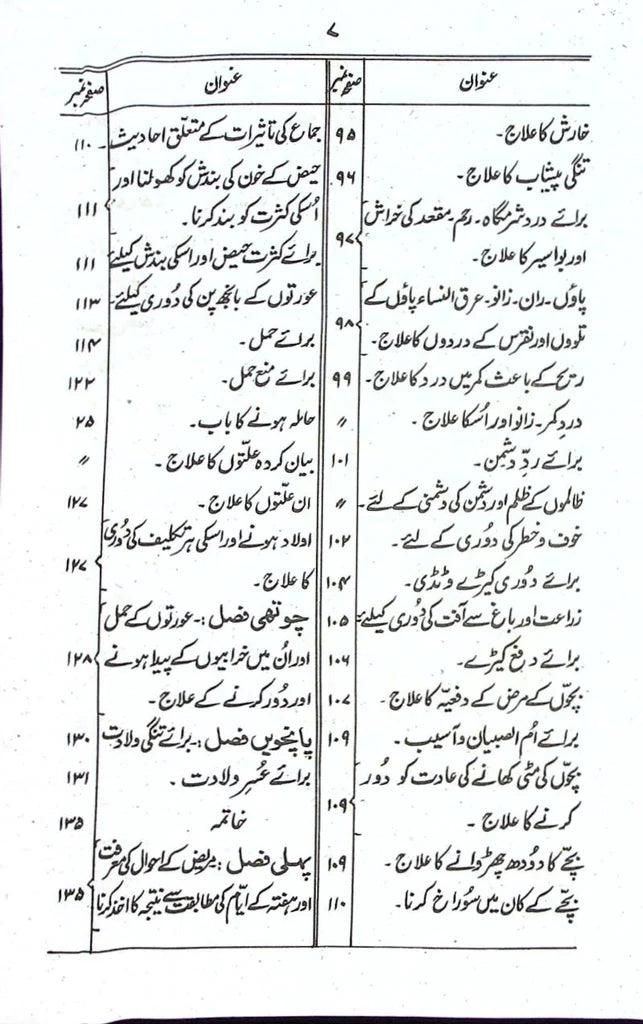 ۷
عنوان صفحہ نمبر
خارش کا علاج۔ ۹۵
تنگی پیشاب کا علاج۔ ۹۶
برائے درد شرمگاہ۔ رحم۔ مقعد کی خراش
اور بواسیر کا علاج۔ ۹۷
پاؤں۔ ران۔ زانو۔ عرق النساء پاؤں کے
تلووں اور نقرس کے دردوں کا علاج۔ ۹۸
ریح کے باعث کمر میں درد کا علاج۔ ۹۹
درد کمر۔ زانو اور اُسکا علاج۔〃
برائے ردِّ دشمن۔ ۱۰۱
ظالموں کے ظلم اور دشمن کی دشمنی کے لئے۔ 〃
خوف و خطر کی دوری کے لئے۔ ۱۰۲
برائے دوری کیڑے و ٹڈی۔ ۱۰۴
زراعت اور باغ سے آفت کی دُوری کیلئے۔ ۱۰۵
برائے دفع کیڑے۔ ۱۰۶
بچّوں کے مرض کے دفعیّہ کا علاج۔ ۱۰۷
برائے اُم الصبیان و آسیب۔ ۱۰۹
بچّوں کی مٹی کھانے کی عادت کو دُور
کرنے کا علاج۔ ۱۰۹
بچّے کا دُودھ چھڑوانے کا علاج۔ ۱۰۹
بچّے کے کان میں سُوراخ کرنا۔ ۱۱۰
عنوان صفحہ نمبر
جماع کی تاثیرات کے متعلّق احادیث۔ ۱۱۰
حیض کے خون کی بندش کو کھولنا اور
اُسکی کثرت کو بند کرنا۔ ۱۱۱
برائے کثرت حیض اور اسکی بندش کیلئے ۱۱۱
عورتوں کے بانجھ پن کی دُوری کیلئے۔ ۱۱۳
برائے حمل۔ ۱۱۴
برائے منع حمل۔ ۱۲۲
حاملہ ہونے کا باب۔ ۲۵
بیان کردہ علّتوں کا علاج۔ 〃
ان علّتوں کا علاج۔ ۱۲۷
اولاد ہونے اور اسکی ہر تکلیف کی دُوری
کا علاج۔ ۱۲۷
چوتھی فصل :۔ عورتوں کے حمل
اور اُن میں خرابیوں کے پیدا ہونے ۱۲۸
اور دُور کرنے کے علاج۔
پانچویں فصل :۔ برائے تنگی ولادت ۱۳۰
برائے عُسرِ ولادت۔ ۱۳۱
خاتمہ ۱۳۵
پہلی فصل : مریض کے احوال کی معرفت
اور ہفتہ کے ایّام کی مطابقت سے نتیجہ کا اخذ کرنا ۱۳۵